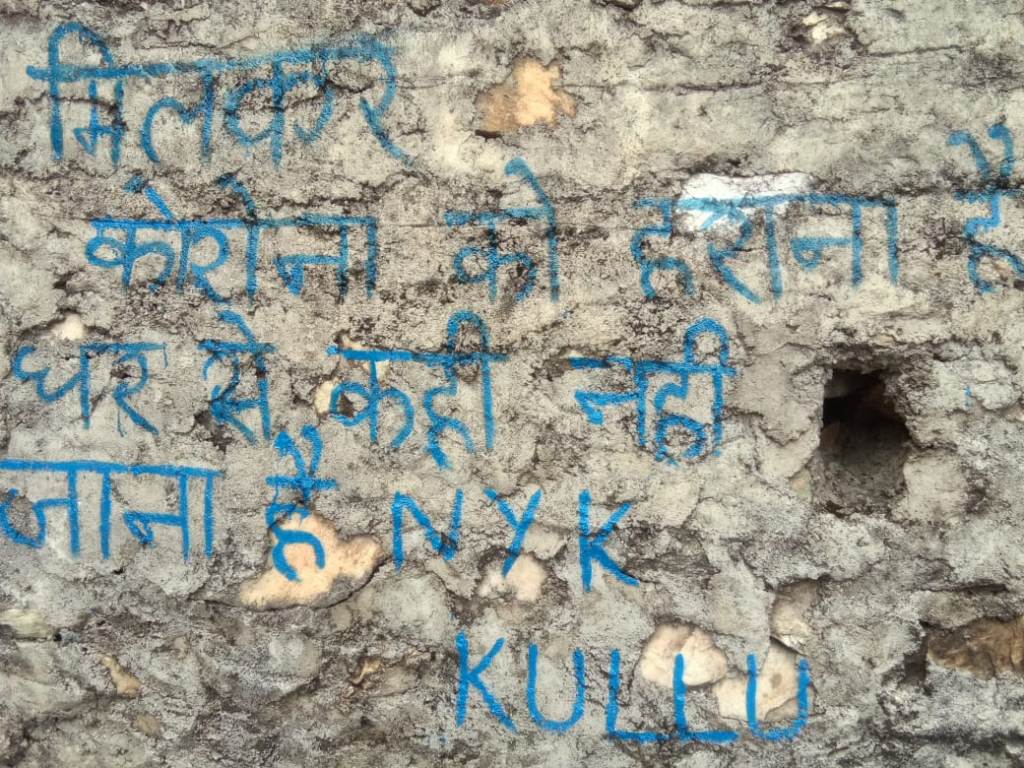 मिलकर
कोरोना को हराना है
घर से कही नही
जाना है NYK
KULLU